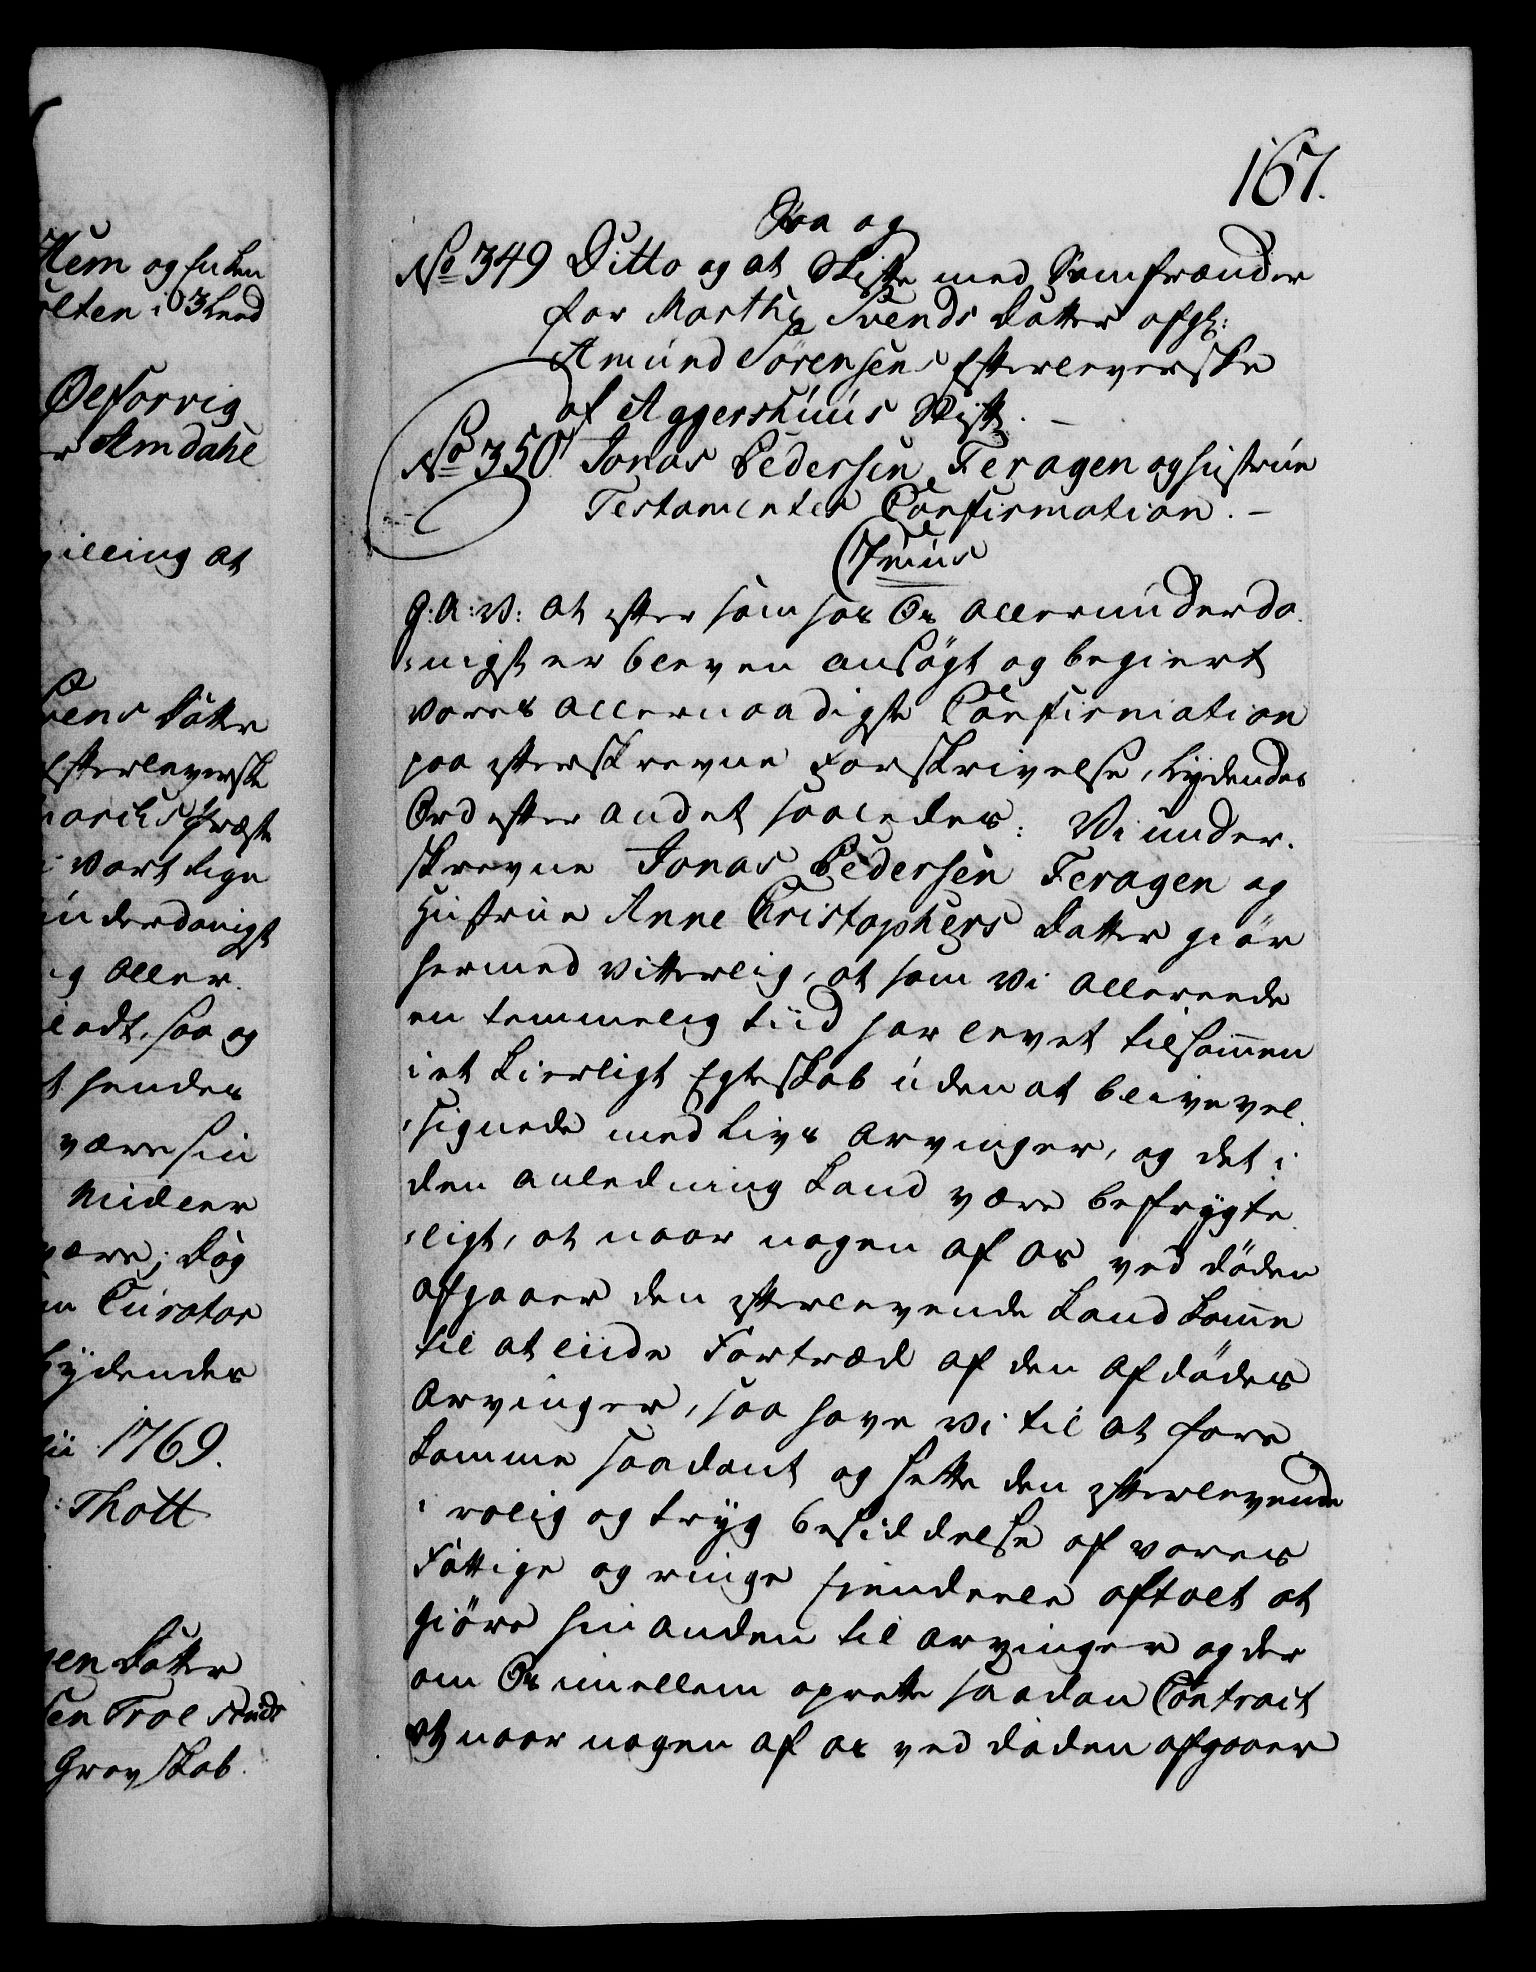 Hem og Enken
olten i 3 Leed
Oefossvig
r Amdahl
villing at
Svens Datter
Efterleverske
Præste
i Vort Rige
underdanigst
og Aller
ladt, saa og
t hendes
være sin
Midler
være; dog
en Curator
Lydendes
lii 1769.
: Thott
sen Datter
sen Troe Studs
Grevskab.
167.
Saa og
No 349 Ditto og at Skifte med Samfrænder
for Marthe Svends Datter afg:
Amund Sörensens Efterleverske
af Aggershuus Stift. –
No 350 Jonas Pedersen Feragen og Hustrue
Testamentes Confirmation. –
G: A: V: at efter som hos Os allerunderda-
nigst er bleven ansögt og begiert
Vores allernaadigste Confirmation
paa efterskrevne Forskrivelse, Lydendes
Ord efter andet saaledes: Vi under-
skrevne Jonas Pedersen Feragen og
Hustrue Anne Cristophers Datter giör
hermed vitterlig, at som Vi allereede
en temmelig tiid har levet tilsammen
i et Kierligt Egteskab uden at blive vel-
signede med Livs Arvinger, og det i
den anledning Kand være befrygte-
ligt, at naar nogen af os ved döden
afgaaer den efterlevende Kand komme
til at liide Fortræd af den afdödes
Arvinger, saa have Vi til at fore-
komme saadant og sette den efterlevende
i rolig og tryg besiddelse af vores
Fattige og ringe Eiendeele aftalt at
giöre hinanden til Arvinger og der
om Os imellem oprette saadan Contract
at naar nogen af os ved döden afgaaer